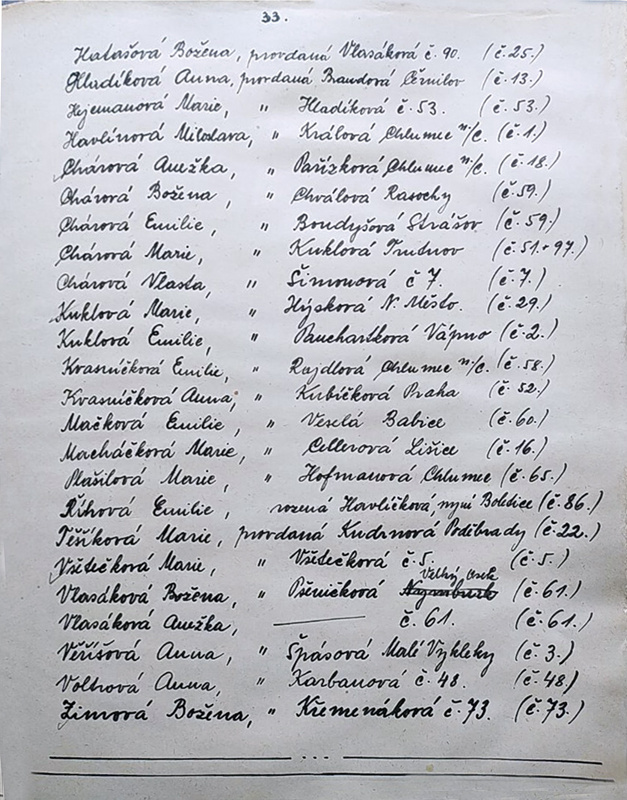 33.
Hatašová Božena, provdaná Vlasáková č. 90. (č. 25.)
Hladíková Anna, provdaná Brandová Černilov (č. 13.)
Hejcmanová Marie, " Hladíková č. 53. (č. 53.)
Havlínová Miloslava, " Králová Chlumec n/C. (č. 1.)
Chárová Anežka, " Pařízková Chlumec n/C. (č. 18.)
Chárová Božena, " Chválová Rasochy (č. 59.)
Chárová Emilie, " Bondyšová Strašov (č. 59.)
Chárová Marie, " Kuklová Trutnov (č. 51 + 97.)
Chárová Vlasta, " Šimonová č 7. (č. 7.)
Kuklová Marie, " Hýsková N. Město. (č. 29.)
Kuklová Emilie, " Pauchartková Vápno (č. 2.)
Kvasničková Emilie, " Rajdlová Chlumec n/C. (č. 58.)
Kvasničková Anna, " Kubíčková Praha (č. 52.)
Mačková Emilie, " Veselá Babice (č. 60.)
Macháčková Marie, " Cellerová Lišice (č. 16.)
Plašilová Marie, " Hofmanová Chlumec (č. 65.)
Říhová Emilie, rozená Havlíčková, nyní Boletice (č. 86.)
Těšíková Marie, provdaná Kudrnová Poděbrady (č. 22.)
Všetečková Marie, " Všetečková č. 5. (č. 5.)
Vlasáková Božena, " Pšeničková Velký Osek (č. 61.)
Vlasáková Anežka, ——— č. 61. (č. 61.)
Veříšová Anna, " Špásová Malé Výkleky (č. 3.)
Voltrová Anna, " Karbanová č. 48. (č. 48)
Zimová Božena, " Křemenáková č. 73. (č. 73.)